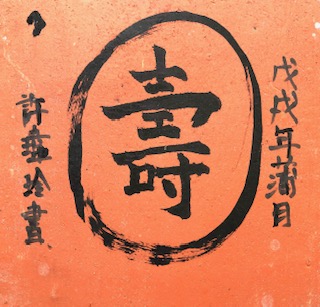 戊戌年蒲月
壽
許燕玲書